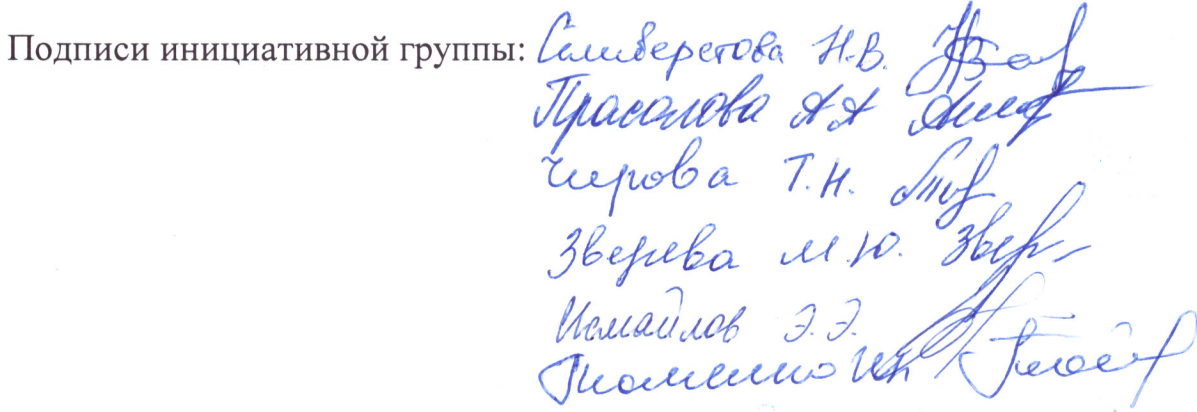 Подписи инициативной группы: Селиверстова Н.В.
Прасолова А А
Чирова Т.Н.
Зверева М.Ю. Звер
Исмайлов Э.Э.